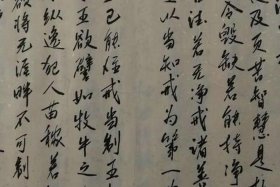 及苦智慧是
令毀缺若能持淨
法若无淨戒諸善
以當知戒為第一
已能住戒當制五
五欲譬如牧牛之
縱逸犯人苗稼若
欲將无涯畔不可制